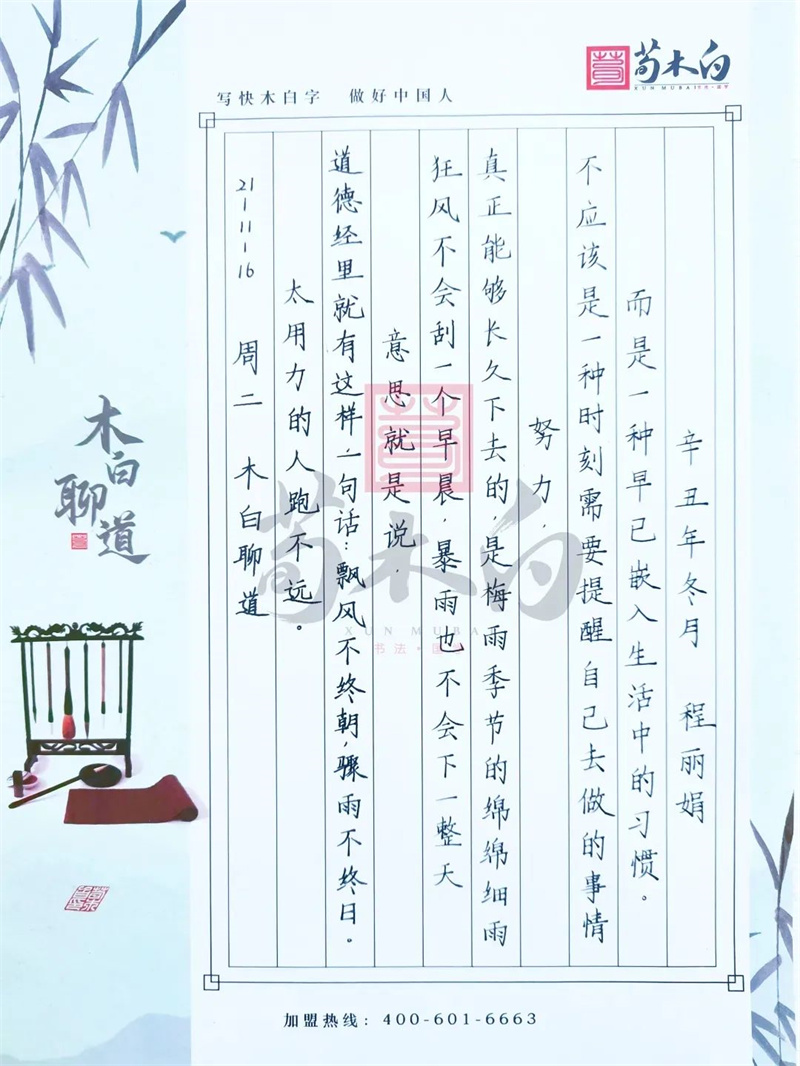 荀木白
XUN MUBAI
写快木白字 做好中国人
21-11-16 周二 木白聊道
太用力的人跑不远。
道德经里就有这样一句话:飘风不终朝,骤雨不终日。
意思就是说,
狂风不会刮一个早晨,暴雨也不会下一整天
真正能够长久下去的,是梅雨季节的绵绵细雨
努力,
不应该是一种时刻需要提醒自己去做的事情
而是一种早已嵌入生活中的习惯。
辛丑年冬月 程丽娟
木白聊道
荀木白
XUN MUBA
书法·国
加盟热线:400-601-6663